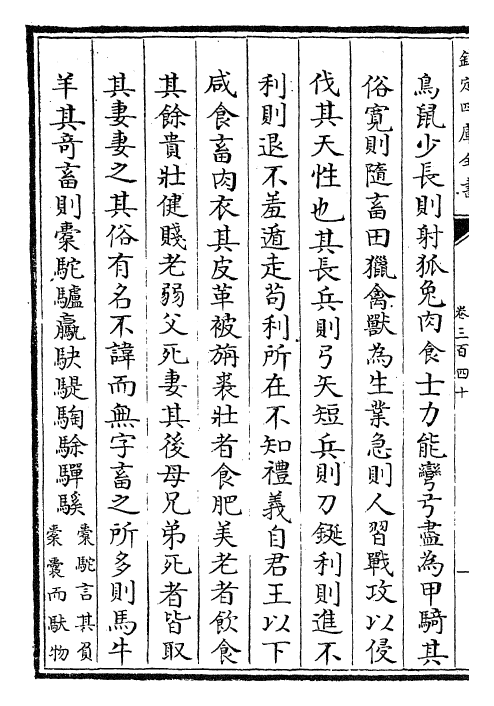 欽定四庫全書
卷三百四十
鳥鼠少長則射狐兔肉食士力能彎弓盡為甲騎其
俗寛則隨畜田獵禽獸為生業急則人習戰攻以侵
伐其天性也其長兵則弓矢短兵則刀鋋利則進不
利則退不羞遁走苟利所在不知禮義自君王以下
咸食畜肉衣其皮革被旃裘壯者食肥美老者飲食
其餘貴壯健賤老弱父死妻其後母兄弟死者皆取
其妻妻之其俗有名不諱而無字畜之所多則馬牛
羊其竒畜則橐駝驢驘駃騠騊駼驒騱
橐駝言其負
橐囊而馱物